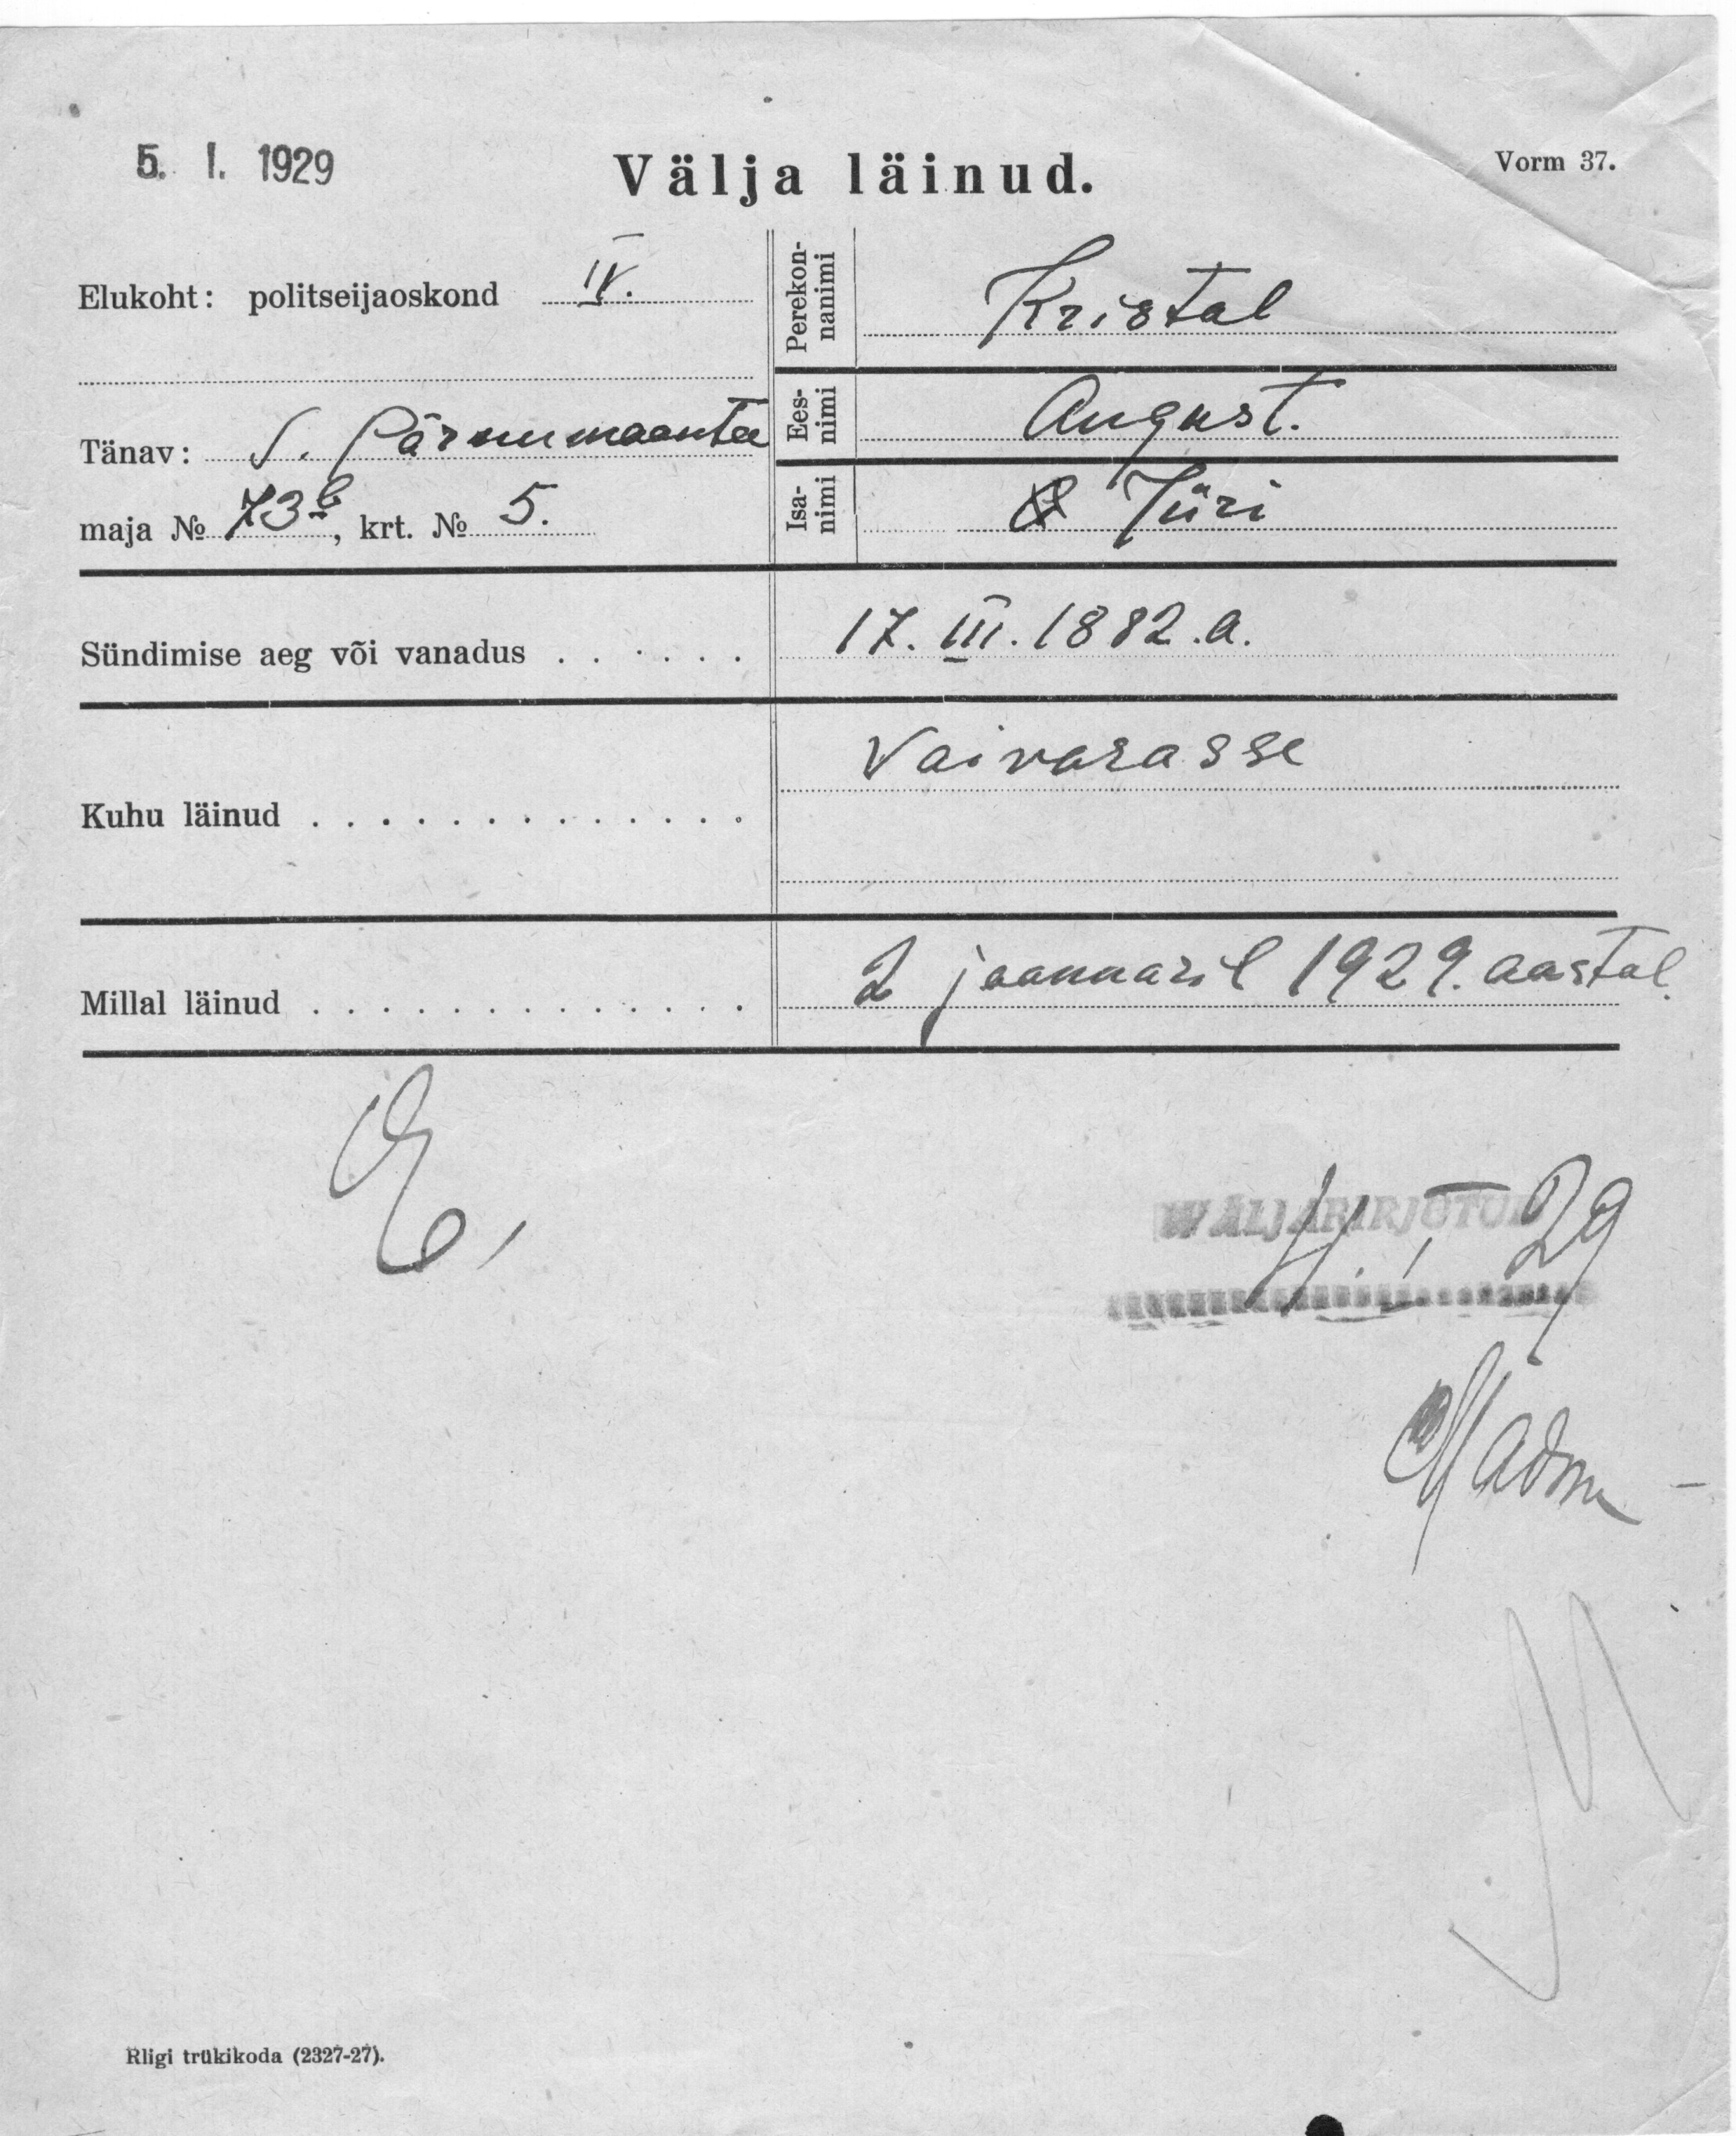 5. I. 1929
Välja läinud.
Vorm 37.
Elukoht: politseijaoskond IV.
Tänav: S. Pärnu maantee
maja № 73b, krt. № 5.
Perekon-
nanimi
Kristal
Ees-
nimi
August.
Isa-
nimi
Jüri
Sündimise aeg või vanadus . . . . . . 17. III. 1882.a.
Kuhu läinud . . . . . . . . . . . . . Vaivarasse
Millal läinud . . . . . . . . . . . . . 2 jaanuaril 1929. aastal.
E.
WÄLJAKIRJUTUD
4. I 29
Riigi trükikoda (2327-27).